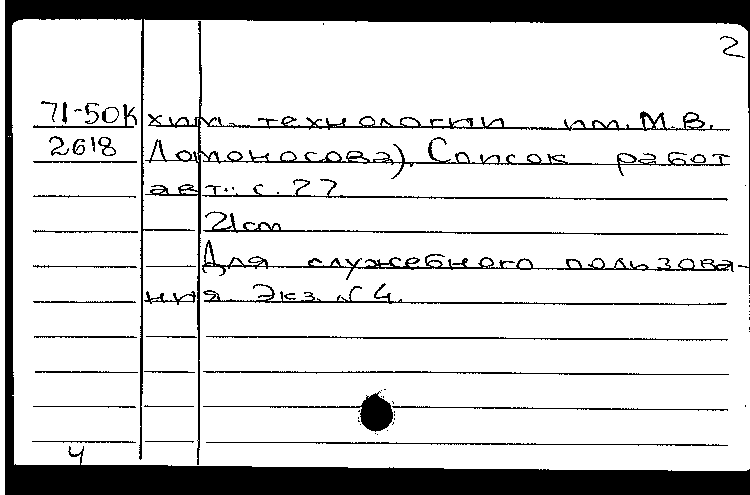 2
71-50К хим. технологии им. М.В.
2618 Ломоносова). Список работ
авт.: с. 22
21 cm
Для служебного пользова-
ния. Экз. № 4.
Ч